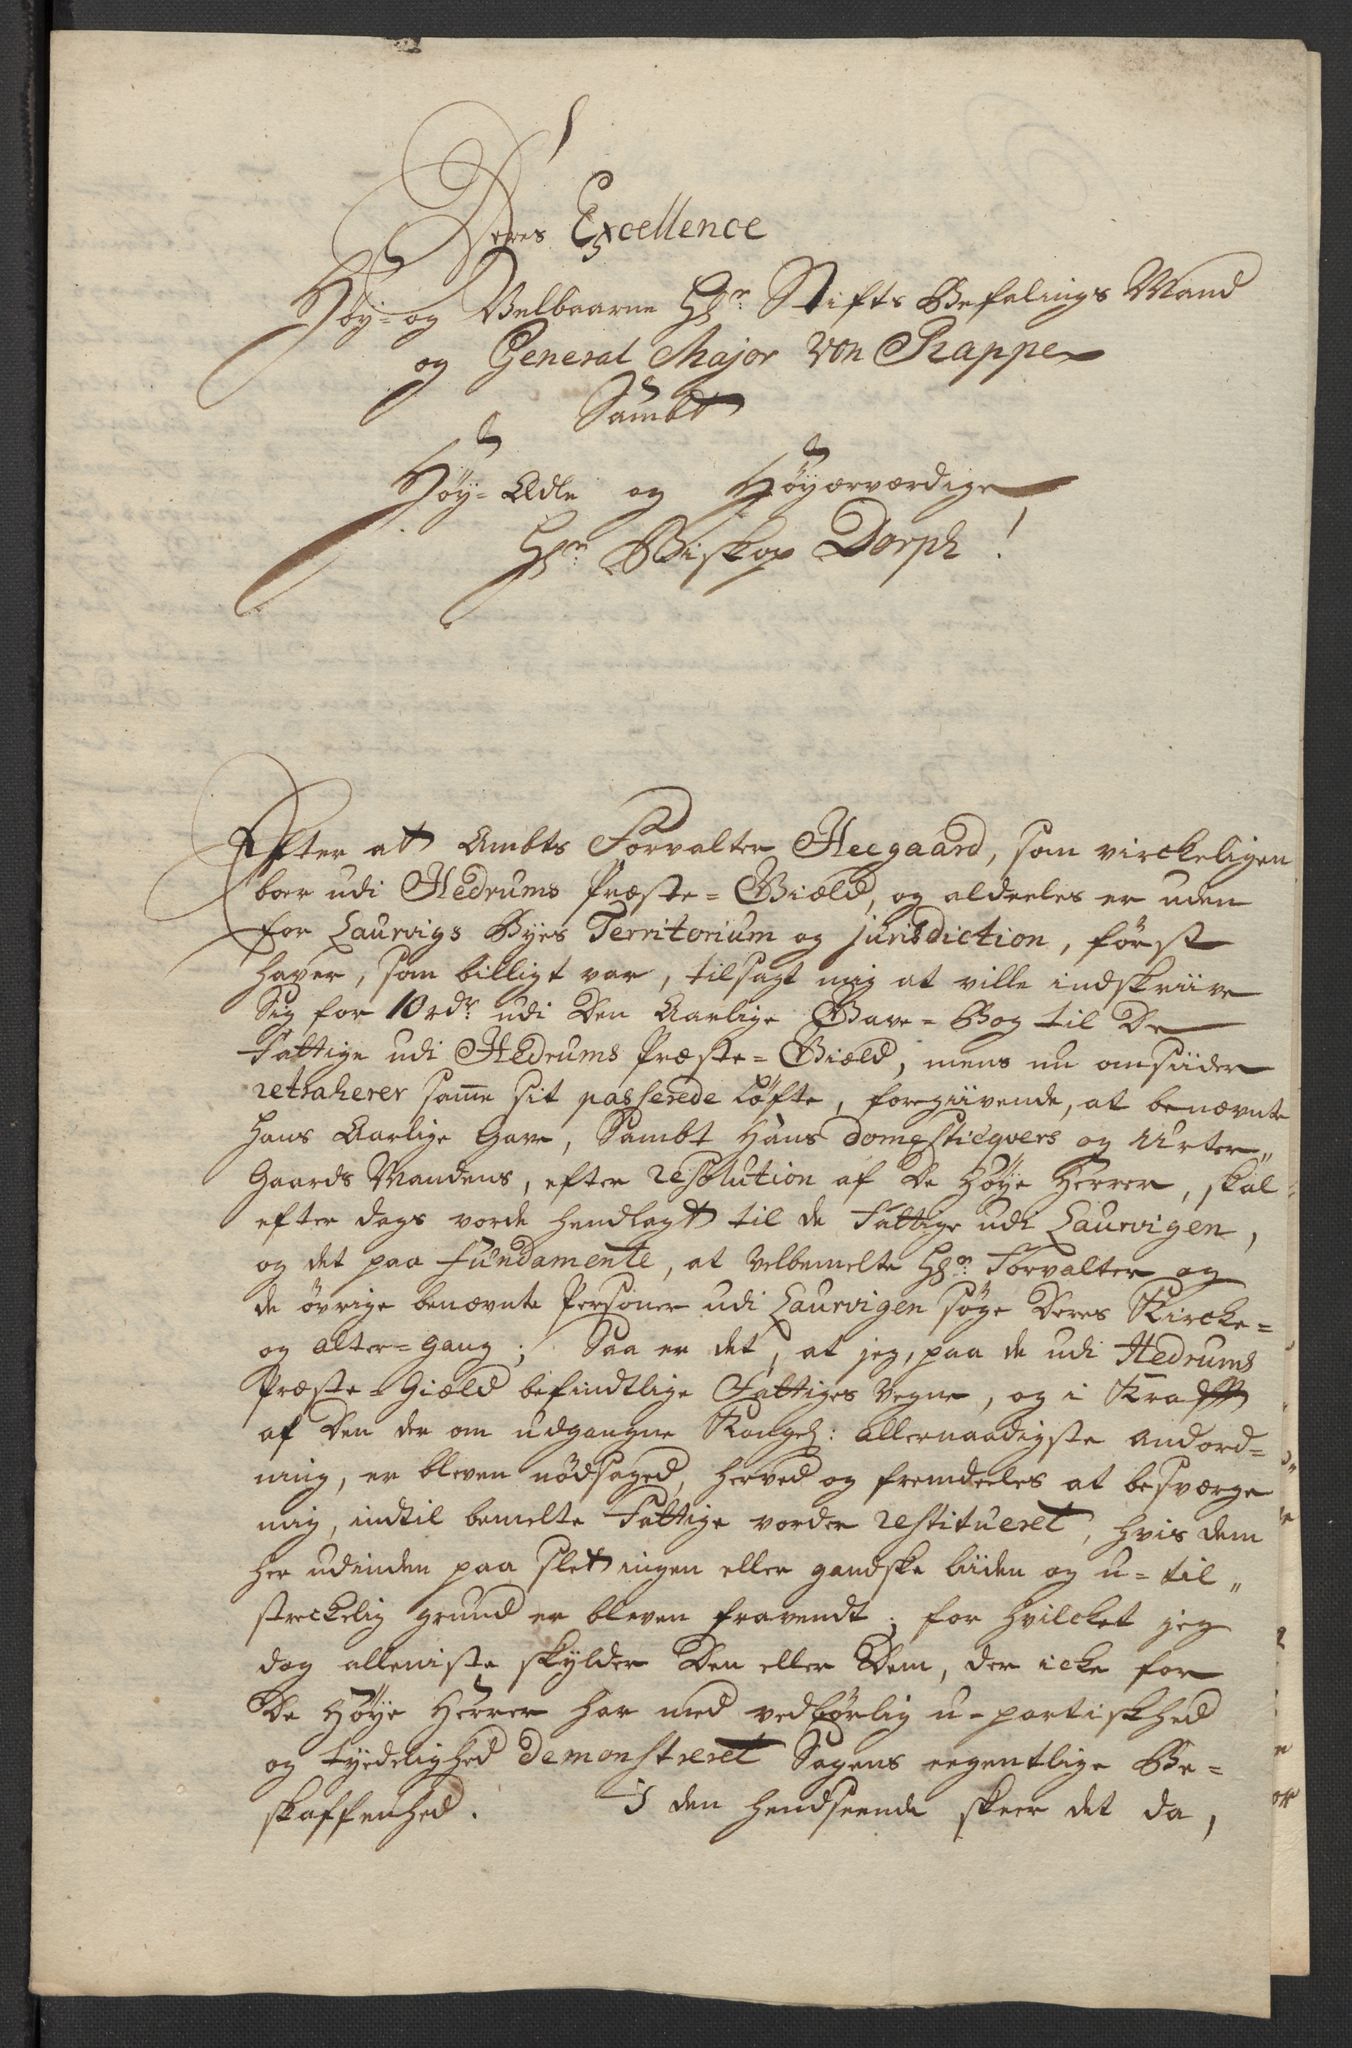 Deres Excellence
Høy- og Velbaarne Hr. Stifts Befalings Mand
og General Major von Rappe
Sambt
Høy-Ædle og Høyærværdige
Hr. Biskop Dorph!
Efter at Ambts Forvalter Heegaard, som virckeligen
boer udi Hedrums Præste-Giæld, og aldeeles er uden
for Laurvigs Byes Territorium og jurisdiction, først
haver, som billigt var, tilsagt mig at ville indskriive
Sig for 10 rdr. udi Den Aarlige Gave-Bog til De
Fattige udi Hedrums Præste-Giæld, mens nu omsiider
retraherer same sit passerede Løfte, foregiivende, at benævnte
hans Aarlige Gave, Sambt Hans domesticqvers og Urter„
Gaards Mandens, efter resolution af De Høye Herrer, skal
efter dags vorde henlagt til de Fattige udi Laurvigen,
og det paa Fundamente, at velbemelte Hr. Forvalter og
de øvrige benævnte Personer udi Laurvigen søge Deres Kircke-
og Alter-gang; Saa er det, at jeg, paa de udi Hedrums
Præste-Giæld befindtlige Fattiges Vegne, og i Krafft
af Den der om udgangne Kongel: allernaadigste Anord-
ning, er bleven nødsaged, herved og fremdeeles at besværge
mig, indtil bemelte Fattige vorder restitueret, hvis dem
her udinden paa slet ingen eller gandske liiden og u-til„
streckelig grund er bleven fravendt; for hvilcket jeg
dog alleniste skylder Den eller Dem, der icke for
De Høye Herrer har med vedbørlig u-partiskhed
og tydelighed demonstreret Sagens eegentlige Be-
skaffenhed. I den henseende skeer det da,